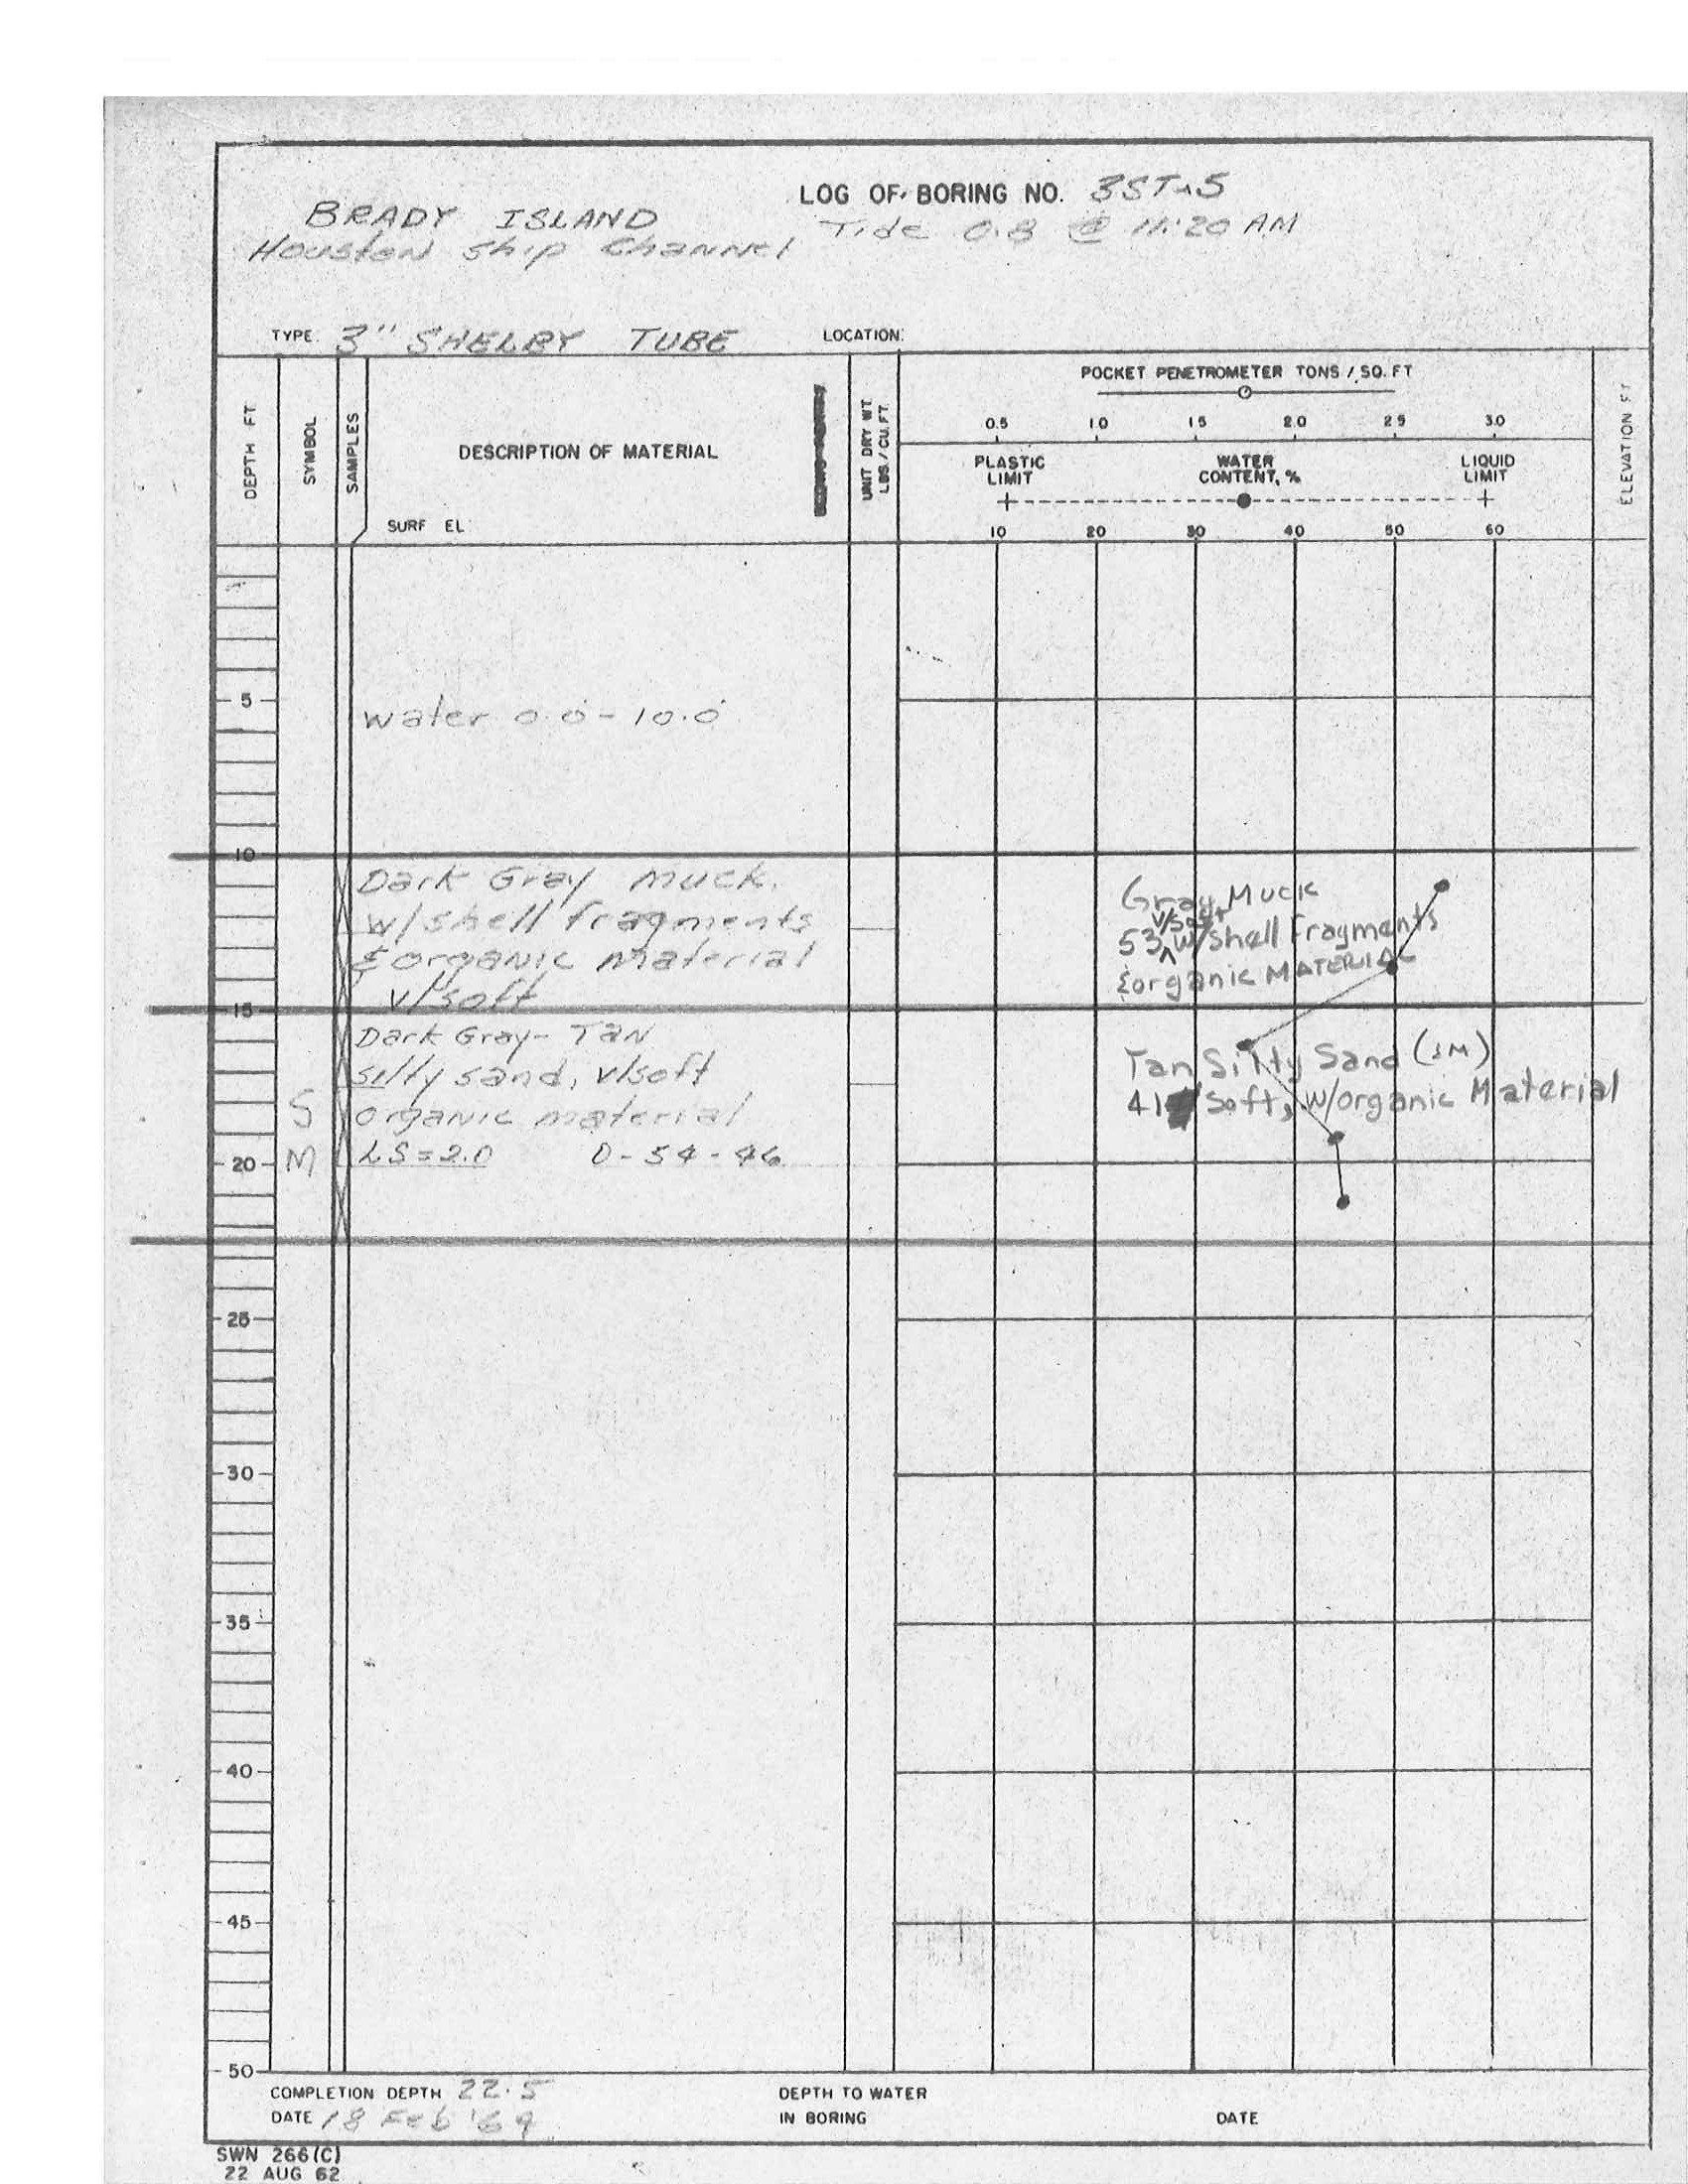 LOG OF BORING NO. 3ST-5
BRADY ISLAND
Tide 0.8 @ 11:20 AM
Houston Ship Channel
TYPE 3" SHELBY TUBE
LOCATION:
DEPTH FT
SYMBOL
SAMPLES
DESCRIPTION OF MATERIAL
SURF EL
UNIT DRY WT.
LBS./CU.FT.
POCKET PENETROMETER TONS / SQ. FT
0.5 1.0 1.5 2.0 2.5 3.0
PLASTIC LIMIT
WATER CONTENT, %
LIQUID LIMIT
10 20 30 40 50 60
ELEVATION FT
5
water 0.0 - 10.0
10
Dark Gray Muck.
w/shell fragments
& organic material
v/soft
Gray Muck
53 v/soft w/shell Fragments
& organic MATERIAL
15
Dark Gray - Tan
silty sand, v/soft
organic material
LS=2.0 0-54-46
SM
Tan Silty Sand (SM)
41 Soft, w/organic Material
20
25
30
35
40
45
50
COMPLETION DEPTH 22.5
DATE 18 Feb '69
DEPTH TO WATER
IN BORING
DATE
SWN 266(C)
22 AUG 62